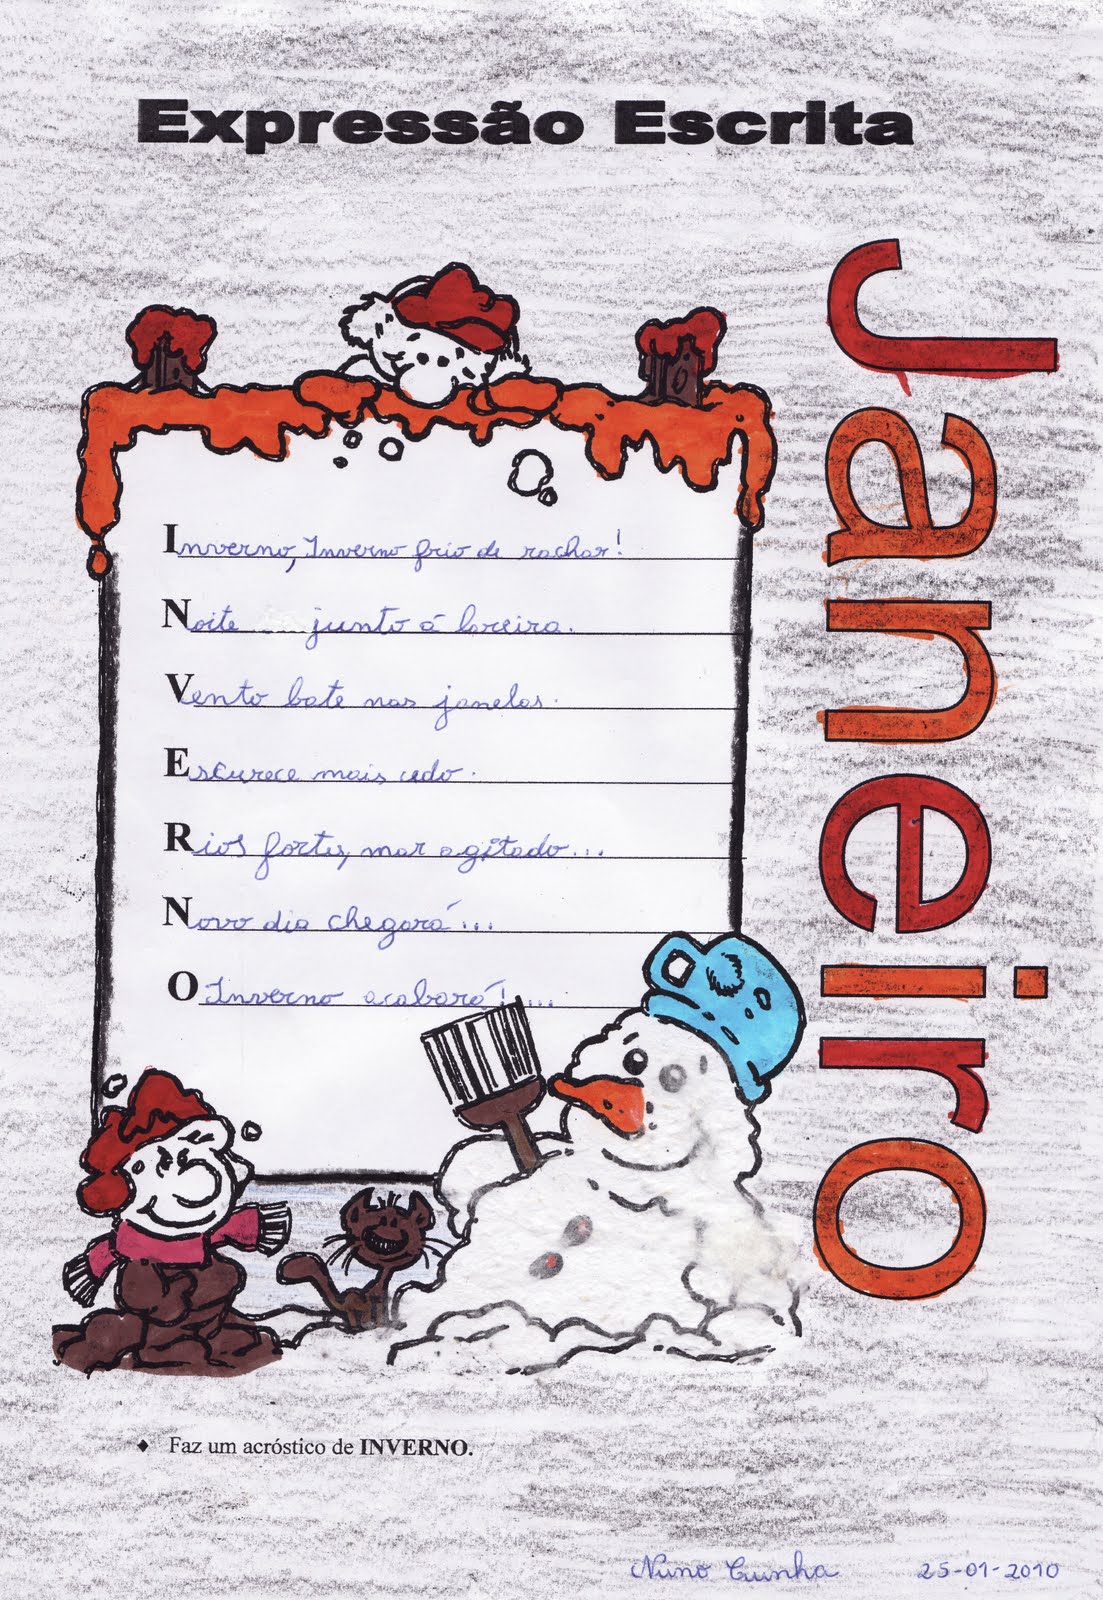 Expressão Escrita
Janeiro
Inverno, Inverno frio de rachar!
Noite junto á lareira.
Vento bate nas janelas.
Escurece mais cedo.
Rios fortes, mar agitado...
Novo dia chegará...
O Inverno acabará!...
Faz um acróstico de INVERNO.
Nuno Cunha 25-01-2010